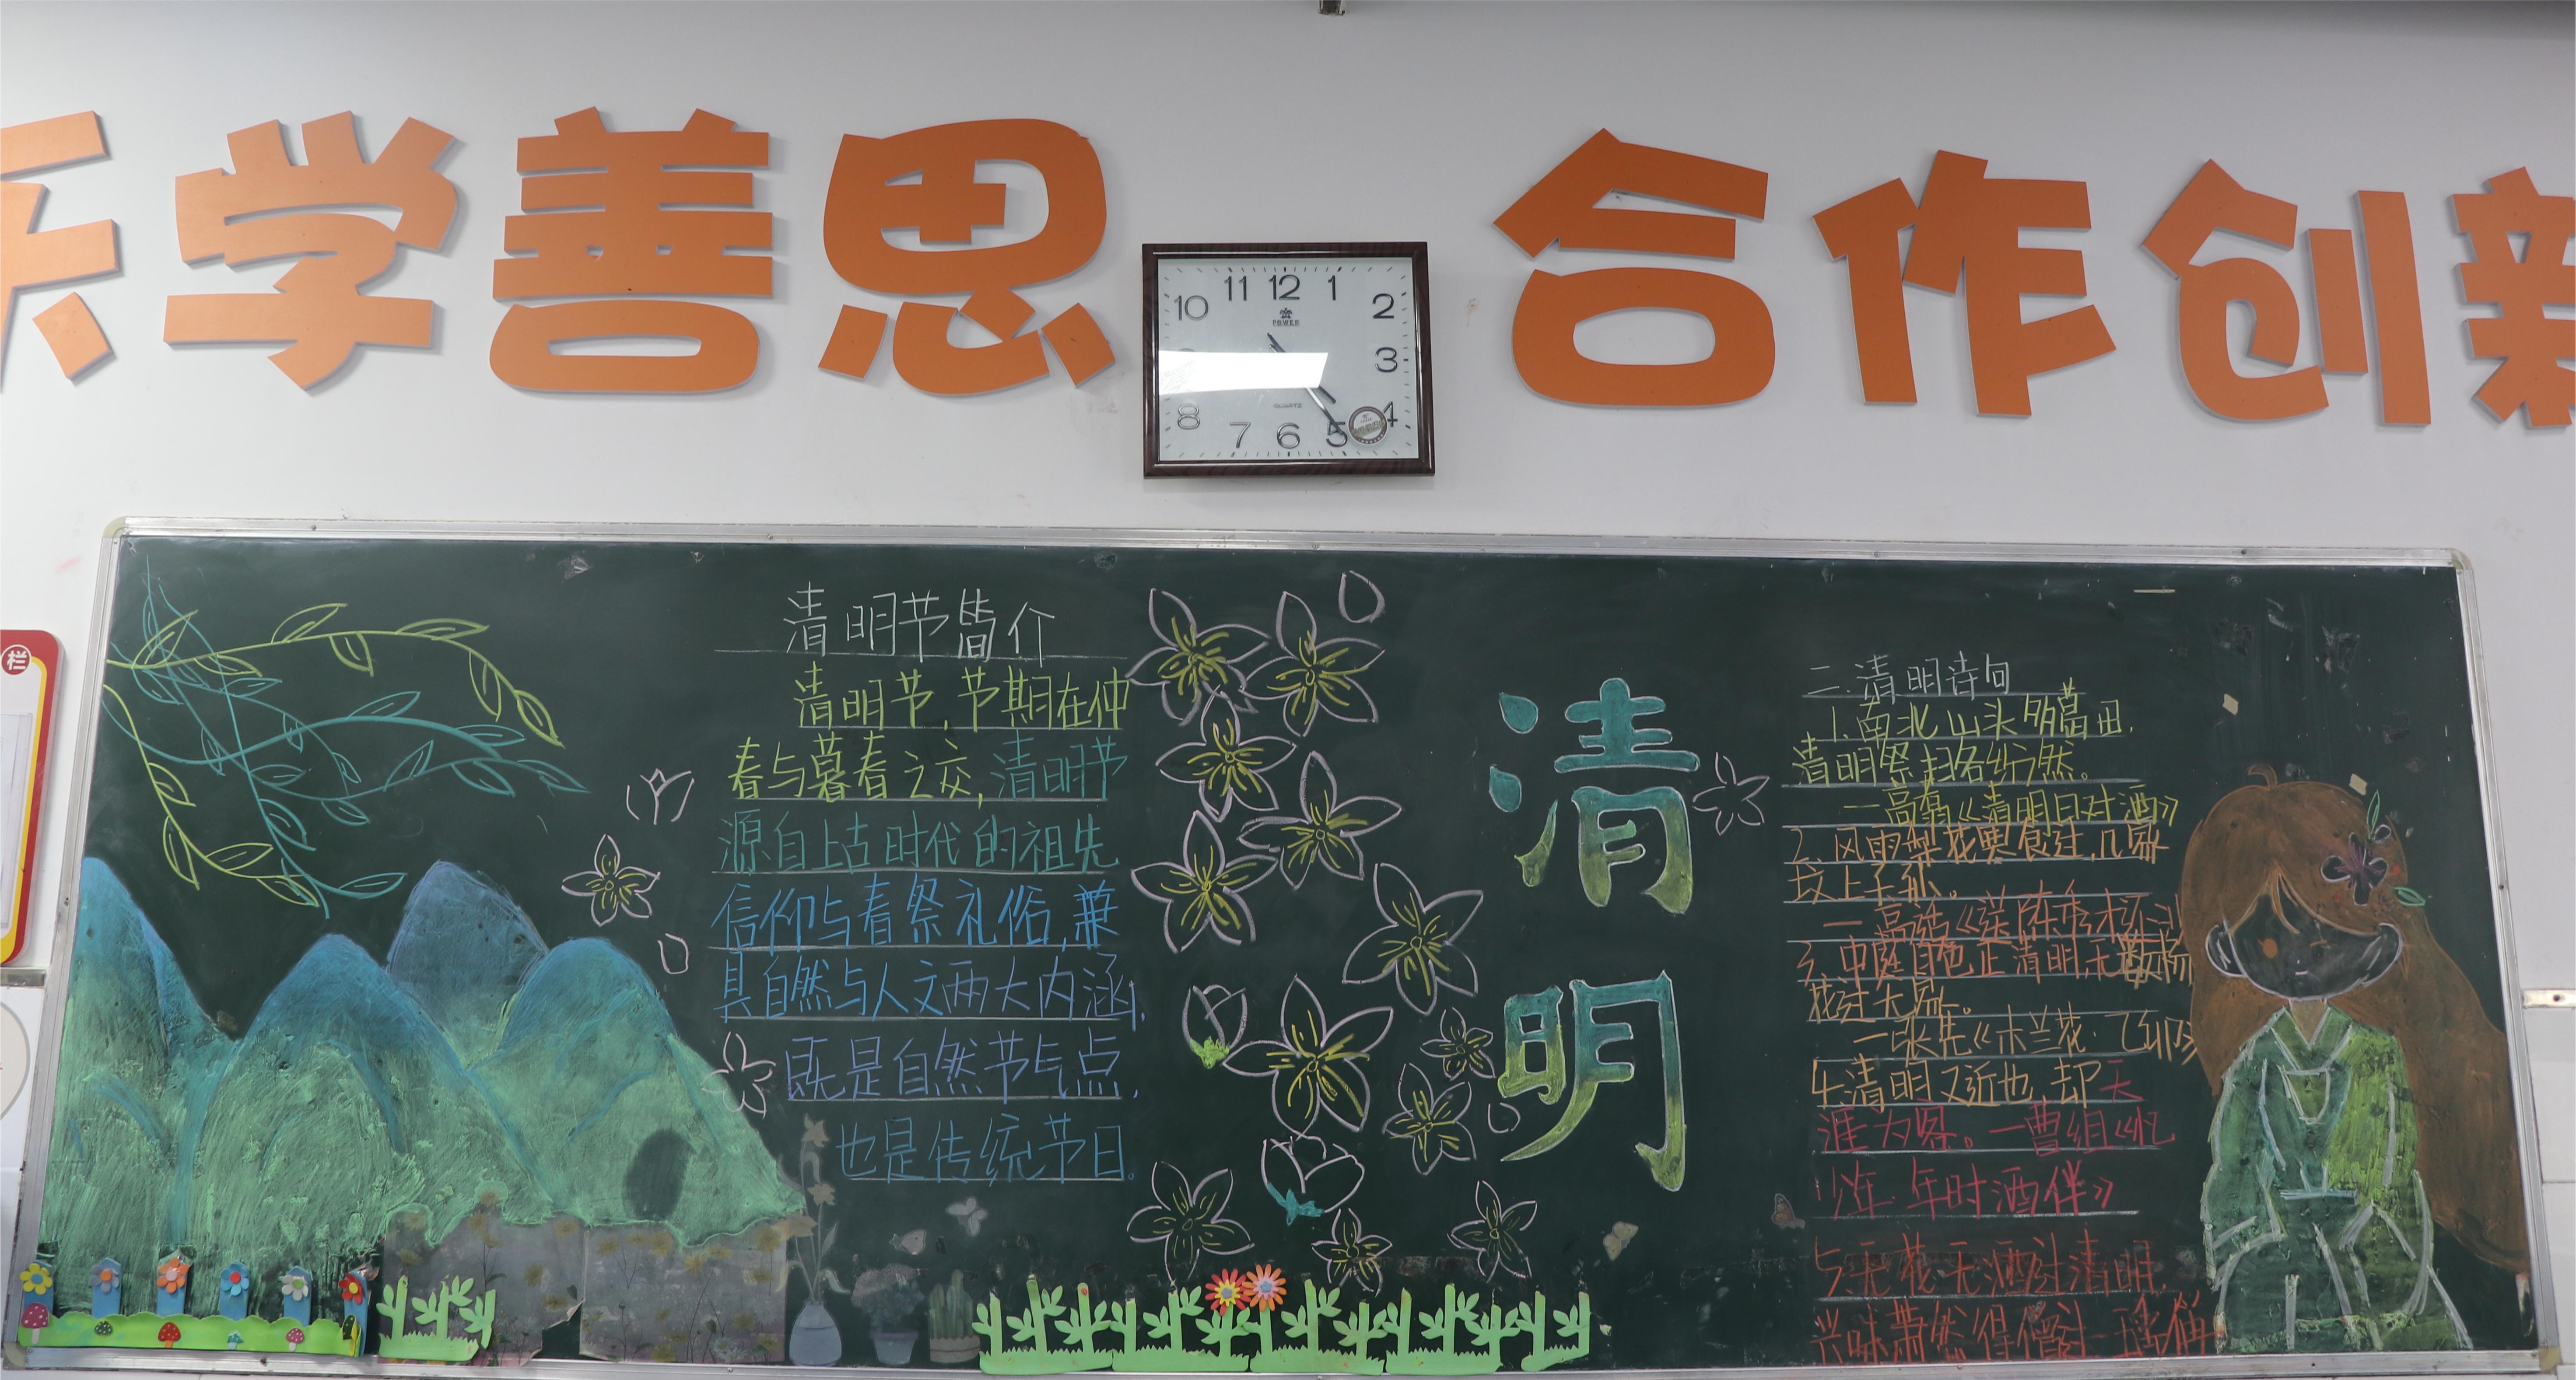 乐学善思 合作创新
11 12 1
10 2
POWER
3
QUARTZ
8 4
7 6 5
栏
清明节简介
清明节,节期在仲
春与暮春之交,清明节
源自上古时代的祖先
信仰与春祭礼俗,兼
具自然与人文两大内涵,
既是自然节气点,
也是传统节日。
清明
二.清明诗句
1.南北山头多墓田,
清明祭扫各纷然。
一高翥《清明日对酒》
2.风雨梨花寒食过,几家
坟上子孙。
一高启《送陈秀才还沙
3.中庭月色正清明,无数杨
花过无影。
一张先《木兰花·乙卯》
4.清明又近也,却天
涯为客。一曹组《忆
少年·年时酒伴》
5无花无酒过清明,
兴味萧然